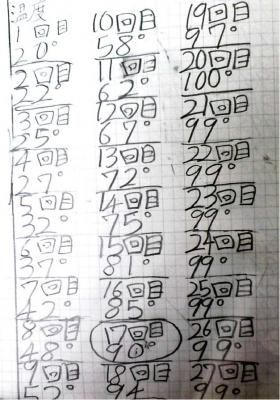 温度
1回目
20°
2回目
22°
3回目
25°
4回目
27°
5回目
32°
6回目
37°
7回目
42°
8回目
48°
9回目
52°
10回目
58°
11回目
62°
12回目
67°
13回目
72°
14回目
75°
15回目
81°
16回目
85°
17回目
90°
18回目
94°
19回目
97°
20回目
100°
21回目
99°
22回目
99°
23回目
99°
24回目
99°
25回目
99°
26回目
99°
27回目
99°